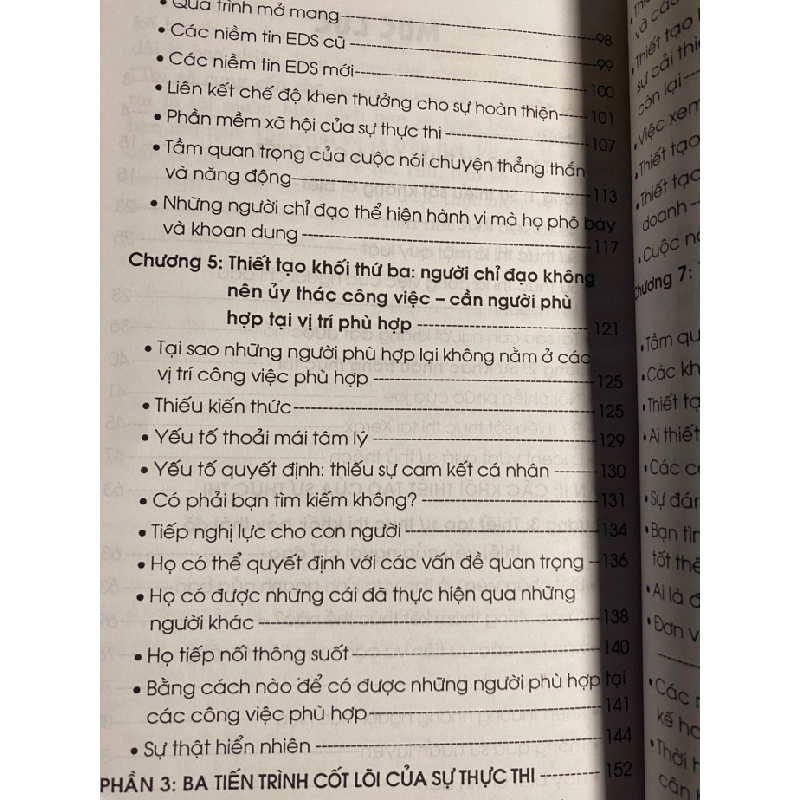 • Quá trình mở mang 98
• Các niềm tin EDS cũ 99
• Các niềm tin EDS mới 100
• Liên kết chế độ khen thưởng cho sự hoàn thiện 101
• Phần mềm xã hội của sự thực thi 107
• Tầm quan trọng của cuộc nói chuyện thẳng thắn
và năng động 113
• Những người chỉ đạo thể hiện hành vi mà họ phô bày
và khoan dung 117
Chương 5: Thiết tạo khối thứ ba: người chỉ đạo không
nên ủy thác công việc – cần người phù
hợp tại vị trí phù hợp 121
• Tại sao những người phù hợp lại không nằm ở các
vị trí công việc phù hợp 125
• Thiếu kiến thức 125
• Yếu tố thoải mái tâm lý 129
• Yếu tố quyết định: thiếu sự cam kết cá nhân 130
• Có phải bạn tìm kiếm không? 131
• Tiếp nghị lực cho con người 134
• Họ có thể quyết định với các vấn đề quan trọng 136
• Họ có được những cái đã thực hiện qua những
người khác 138
• Họ tiếp nối thông suốt 140
• Bằng cách nào để có được những người phù hợp tại
các công việc phù hợp 141
• Sự thật hiển nhiên 144
PHẦN 3: BA TIẾN TRÌNH CỐT LÕI CỦA SỰ THỰC THI 152
và các
• Thiết tạo
sự cải thiện
còn lại
• Việc xem
• Thiết tạo
• Thiết tạo
doanh
• Cuộc
Chương 7:
• Tầm qu
• Các kh
• Thiết tạ
• Ai thiết
• Các c
• Sự đán
• Bạn tìn
tốt thế
• Ai là đ
• Đơn v
• Các
kế ho
• Thời
cần